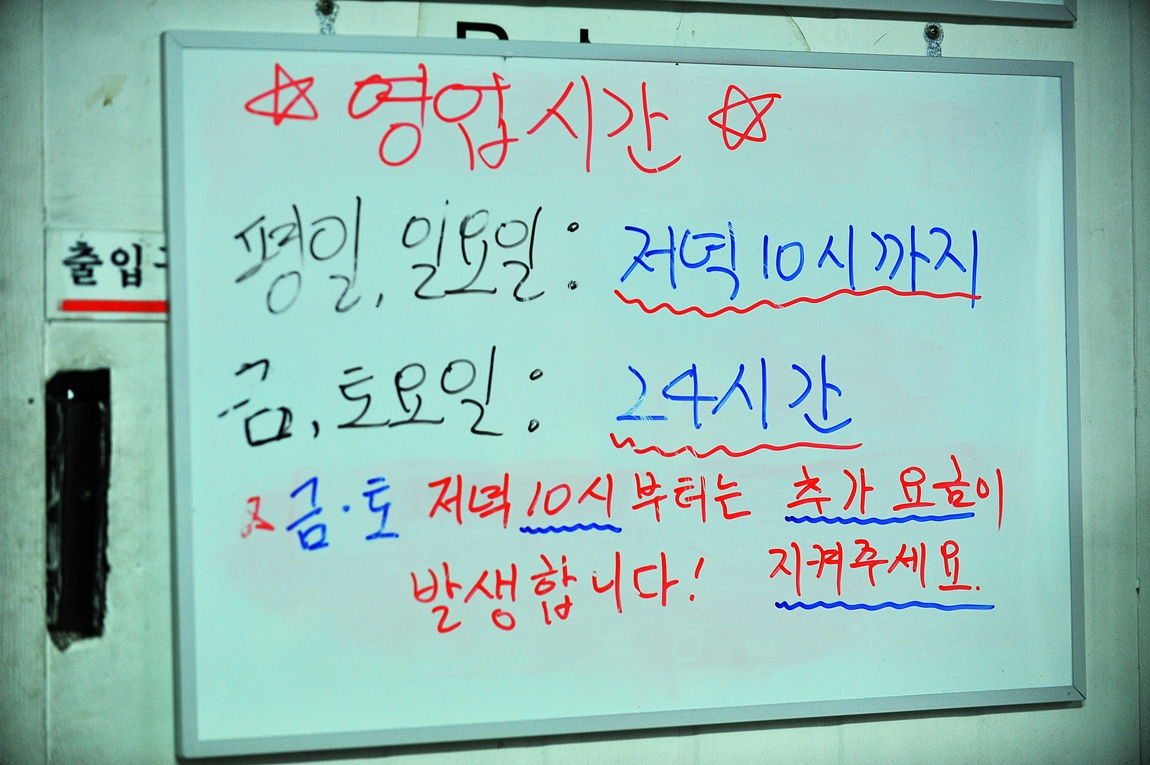 ☆ 영업시간 ☆
평일, 일요일 : 저녁 10시까지
금, 토요일 : 24시간
※ 금·토 저녁 10시부터는 추가 요금이
발생합니다! 지켜주세요.
출입